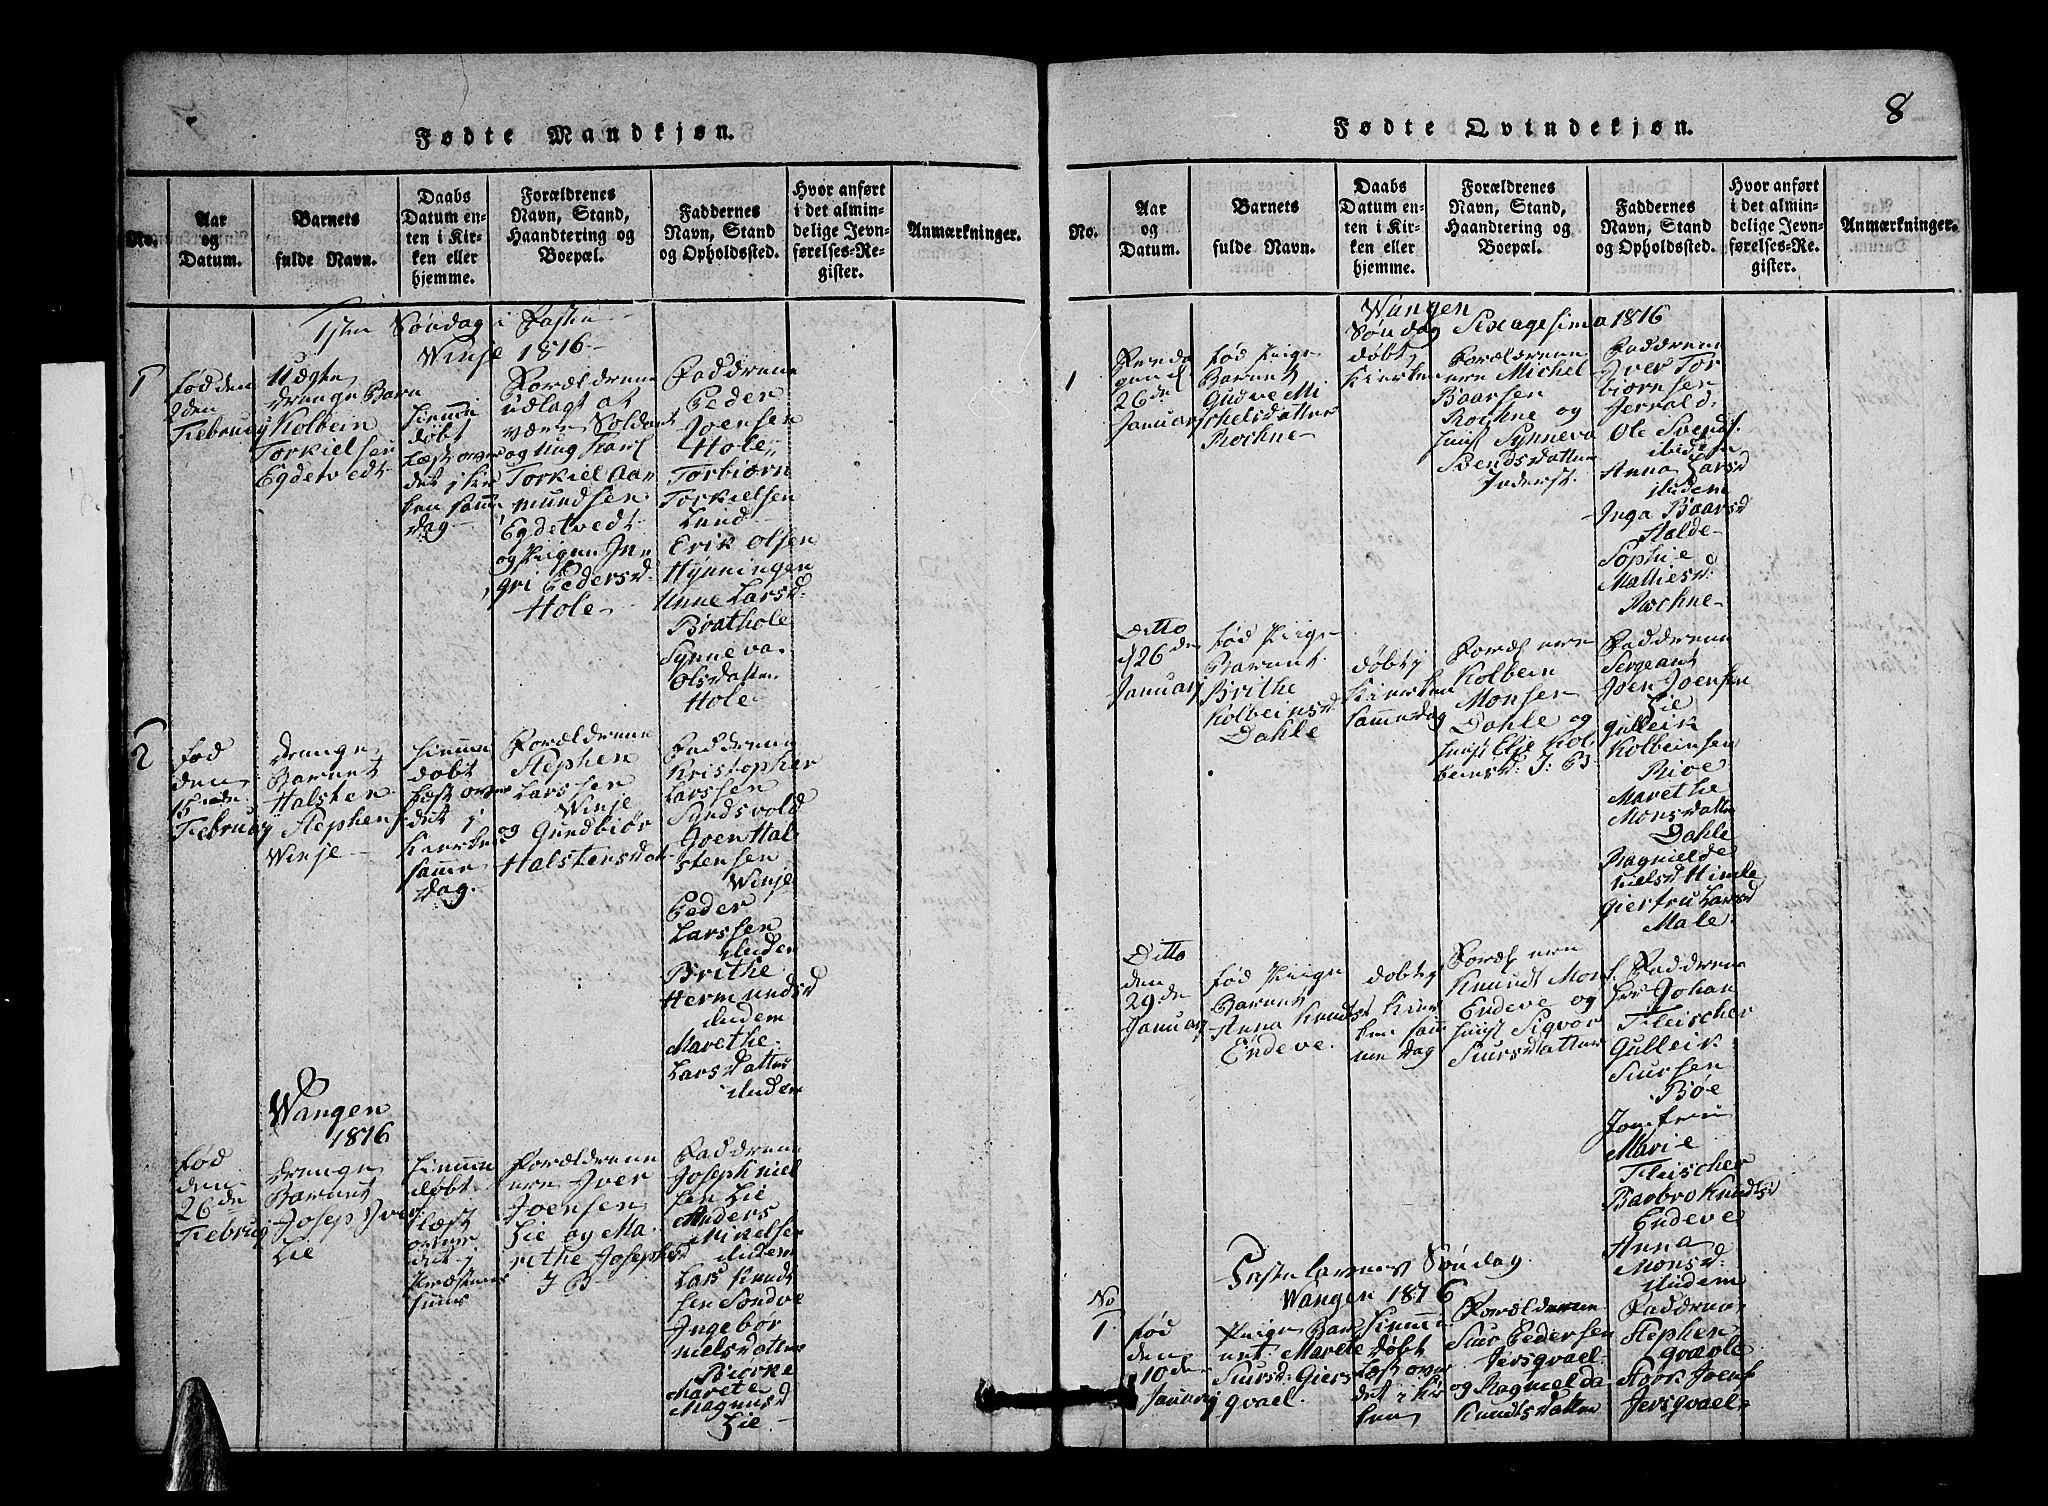 Fødte Mandkjøn.
No.
Aar
og
Datum.
Barnets
fulde Navn.
Daabs
Datum en-
ten i Kir-
ken eller
hjemme.
Forældrenes
Navn, Stand,
Haandtering og
Boepæl.
Faddernes
Navn, Stand
og Opholdssted.
Hvor anført
i det almin-
delige Jevn-
førelses-Re-
gister.
Anmærkninger.
1ste Søndag i Faste
Winje 1816
1
fød den
2den
Februarj
Uægte
Drenge Barn
Kolbein
Torkielsen
Egdetvedt
hiemme
døbt
Læst over
det i Kir
ken samme
dag
Forældrene
udlagt at
være Soldat
og ung Karl
Torkiel Aa
mundsen
Egdetvedt
og Pigen In
gri Pedersd
Hole
Faddrene
Peder
Joensen
Hole
Torbiørn
Torkielsen
Lund
Erik Olsen
Hynningen
Anne Larsd
Brathole
Synneva
Olsdatter
Hole
2
fød
den
15de
Februarj
Drenge
Barnet
Halsten
Stephens
Winje
hiemme
døbt
Læst over
det i
Kierken
samme
dag.
Forældrene
Stephen
Larssen
Winje
og Gundbiør
Halstensdat
Faddrene
Kristopher
Larssen
Sundsvold
Joen Hal
stensen
Winje
Peder
Larssen
ibidem
Brithe
Hermundsd
ibidem
Marethe
Larsdatter
ibidem
Wangen
1816
fød
den
26de
Februarj
Drenge
Barnet
Josep Iver
Lie
hiemme
døbt
læst
over
det i
Præstens
huus
Forældrene
ere Iver
Joensen
Lie og Ma
rethe Josephsd
I B
Faddrene
Joseph Niel
sen Lie
Anders
Mikelsen
ibidem
Lars Knudt
sen Sondve
Ingebor
Nielsdatter
Biørke
Marete
Magnusd
Lie
8
Fødte Qvindekjøn.
No.
Aar
og
Datum.
Barnets
fulde Navn.
Daabs
Datum en-
ten i Kir-
ken eller
hjemme.
Forældrenes
Navn, Stand,
Haandtering og
Boepæl.
Faddernes
Navn, Stand
og Opholdssted.
Hvor anført
i det almin-
delige Jevn-
førelses-Re-
gister.
Anmærkninger.
Wangen
Søndag Sexagesima 1816
1
26de
Januarj
fød Pige
Barnet
Gudve Mi
chelsdatter
Rochne
døbt i
Kierken
Forældrene
ere Michel
Baarsen
Rochne og
Synneva
Svendsdatter
Inderst.
Faddrene
Iver Tor
biørnsen
Jerrald
Ole Svends.
ibidem
Anna Larsd
ibidem
Inga Baarsd
Halde
Sophie
Mathiesd
Rochne
Ditto
d 26 den
Januarj
fød Pige
Barnet
Brithe
Kolbeinsd
Dahle
døbt i
Kierken
samme dag
Foræl ere
Kolbein
Monsen
Dahle og
Elie Kol
beinsd: I: B
Faddrene
Sergeant
Joen Joensen
Lie
Gulleik
Kolbeinsen
Bøe
Marethe
Monsdatter
Dahle
Ragnielde
Nielsd Himle
Giertru Larsd
Male
Ditto
den
29de
Januarj
fød Pige
Barnet
Anna Knudts
Endeve.
døbt i
Kier
ken sam
me dag
Foræl ere
Knudt Mons.
Endeve og
Sigvor
Siursdatter
Faddrene
Hr Johan
Fleischer
Gulleik
Siursen
Bøe
Jomfru
Marie
Fleischer
Barbro Knudtsd
Endeve
Anna
Monsd:
ibidem
Fastelavens Søndag
Wangen 1816
No
1.
fød
den
10de
Januarj
Pige Bar
net Marete
Siursd: Giers
qvael.
hiemme
døbt
Læst over
det i Kir
ken
Forældrene
Siur Pedersen
Jersqvael
og Ragnielda
Knudtsdatter
Faddrene
Stephen
Qvævle
Størk Joens
Jersqvael